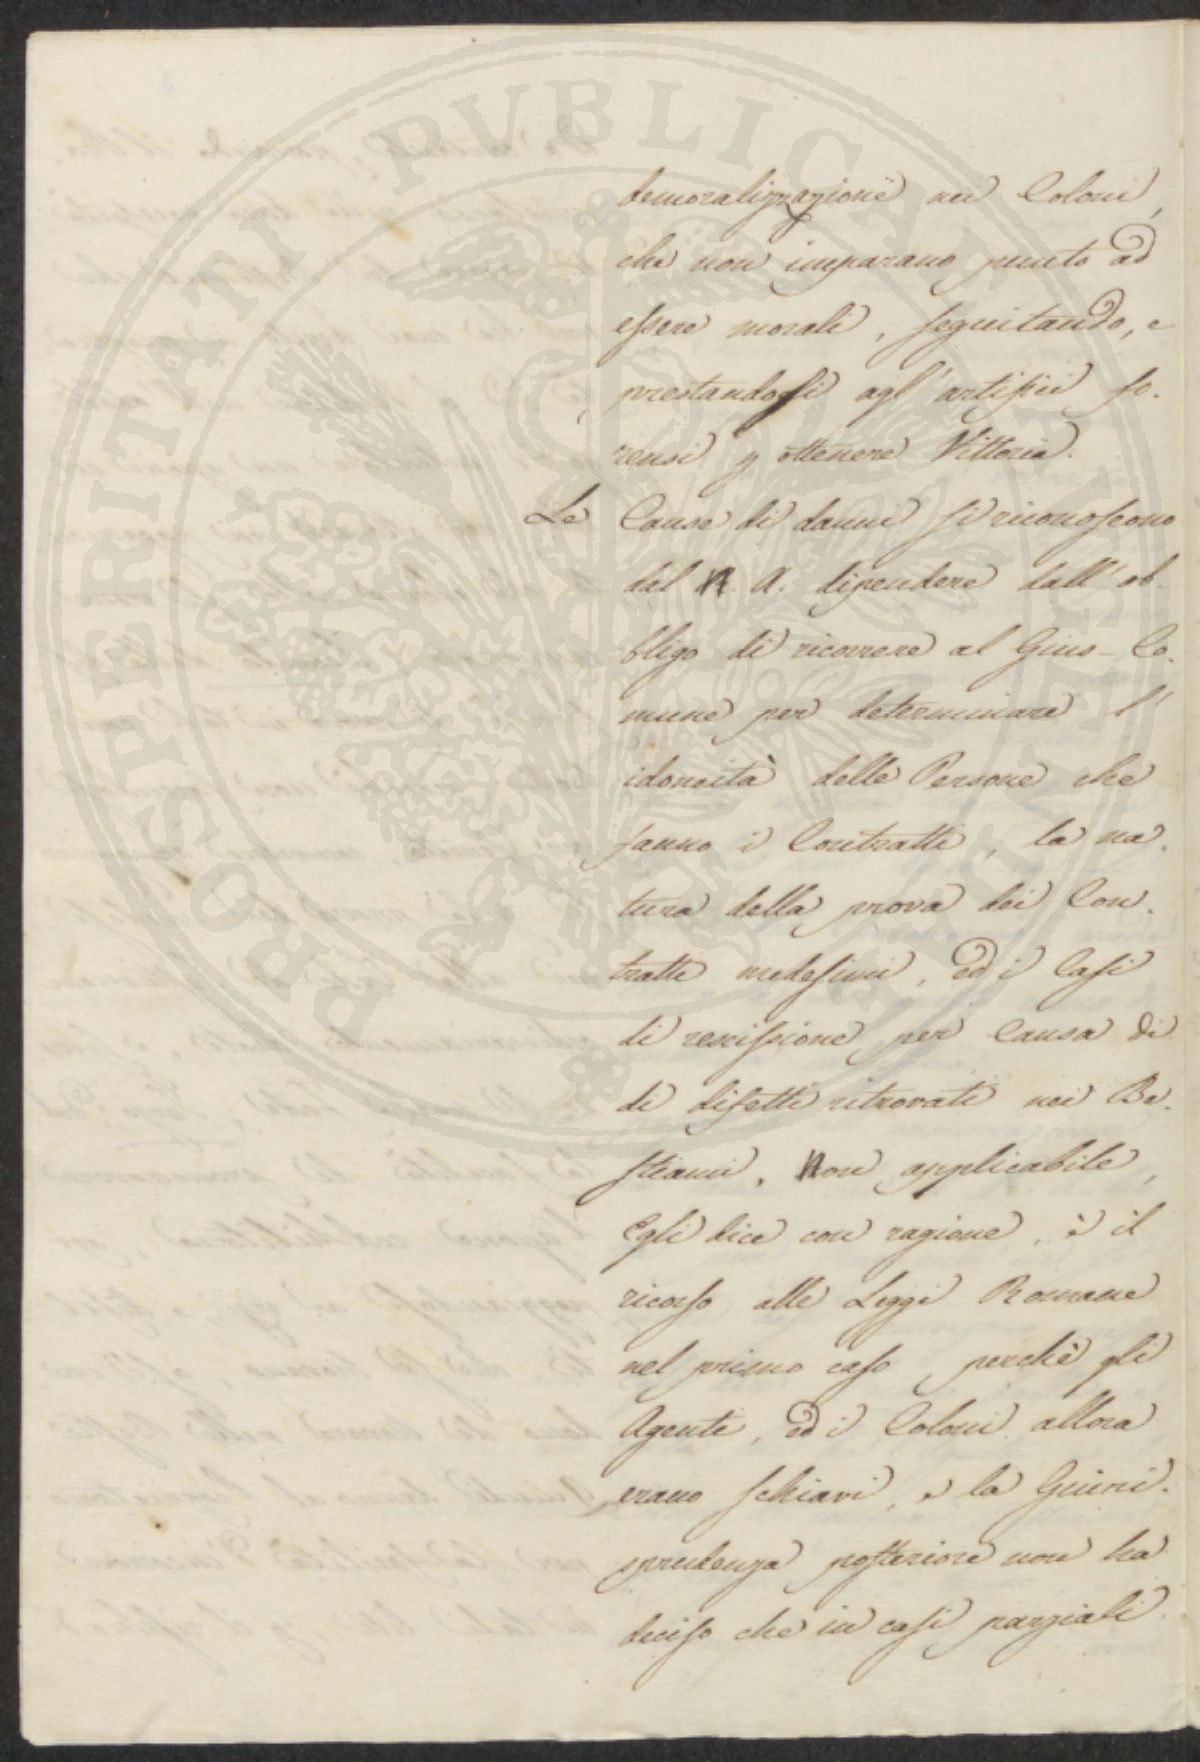 PROSPERITATI PUBLICAE AUGENDAE
demoralizzazione nei Coloni,
che non imparano punto ad
essere morali, seguitando, e
prestandosi agl'artifici fo-
rensi p ottenere Vittoria.
Le Cause di danni si riconoscono
dal N. A. dipendere dall'ob-
bligo di ricorrere al Gius-Co-
mune per determinare l'
idoneità delle Persone che
fanno i Contratti, la na-
tura della prova dei Con-
tratti medesimi, ed i Casi
di rescissione per Causa di
di difetti ritrovati nei Be-
stiami. Non applicabile,
Egli dice con ragione, è il
ricorso alle Leggi Romane
nel primo caso, perchè gli
Agenti, ed i Coloni allora
erano schiavi, e la Giuri-
sprudenza posteriore non ha
deciso che in casi parziali